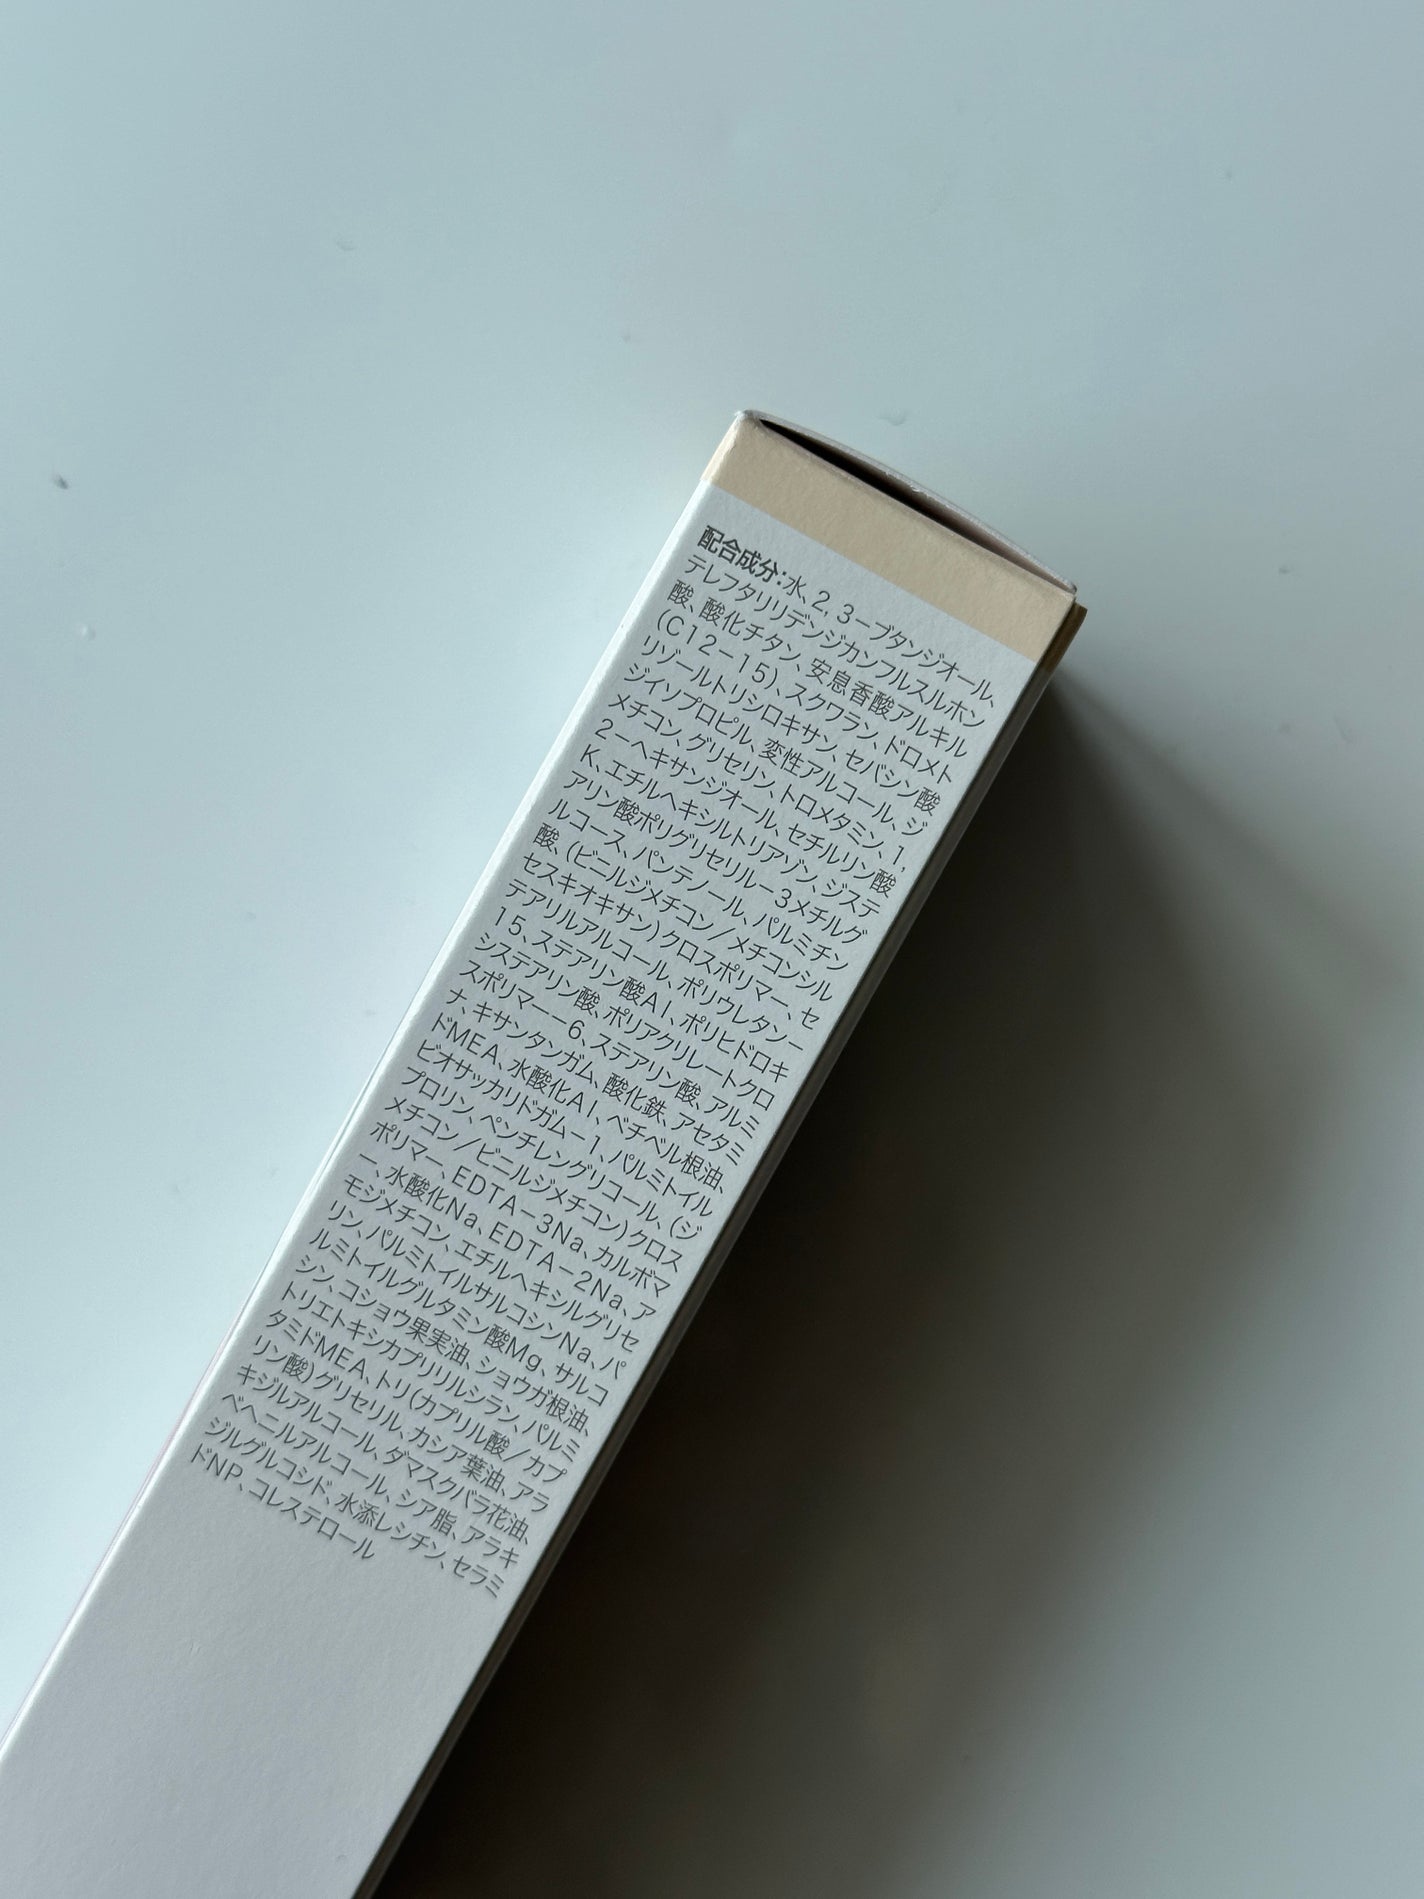 配合成分:水、2, 3−ブタンジオール、
テレフタリリデンジカンフルスルホン
酸、酸化チタン、安息香酸アルキル
(C12−15)、スクワラン、ドロメト
リゾールトリシロキサン、セバシン酸
ジイソプロピル、変性アルコール、ジ
メチコン、グリセリン、トロメタミン、1,
2−ヘキサンジオール、セチルリン酸
K、エチルヘキシルトリアゾン、ジステ
アリン酸ポリグリセリル−3メチルグ
ルコース、パンテノール、パルミチン
酸、(ビニルジメチコン/メチコンシル
セスキオキサン)クロスポリマー、セ
テアリルアルコール、ポリウレタン−
15、ステアリン酸Al、ポリヒドロキ
システアリン酸、ポリアクリレートクロ
スポリマー−6、ステアリン酸、アルミ
ナ、キサンタンガム、酸化鉄、アセタミ
ドMEA、水酸化Al、ベチベル根油、
ビオサッカリドガム−1、パルミトイル
プロリン、ペンチレングリコール、(ジ
メチコン/ビニルジメチコン)クロス
ポリマー、EDTA−3Na、カルボマ
ー、水酸化Na、EDTA−2Na、ア
モジメチコン、エチルヘキシルグリセ
リン、パルミトイルサルコシンNa、パ
ルミトイルグルタミン酸Mg、サルコ
シン、コショウ果実油、ショウガ根油、
トリエトキシカプリリルシラン、パルミ
タミドMEA、トリ(カプリル酸/カプ
リン酸)グリセリル、カシア葉油、アラ
キジルアルコール、ダマスクバラ花油、
ベヘニルアルコール、シア脂、アラキ
ジルグルコシド、水添レシチン、セラミ
ドNP、コレステロール